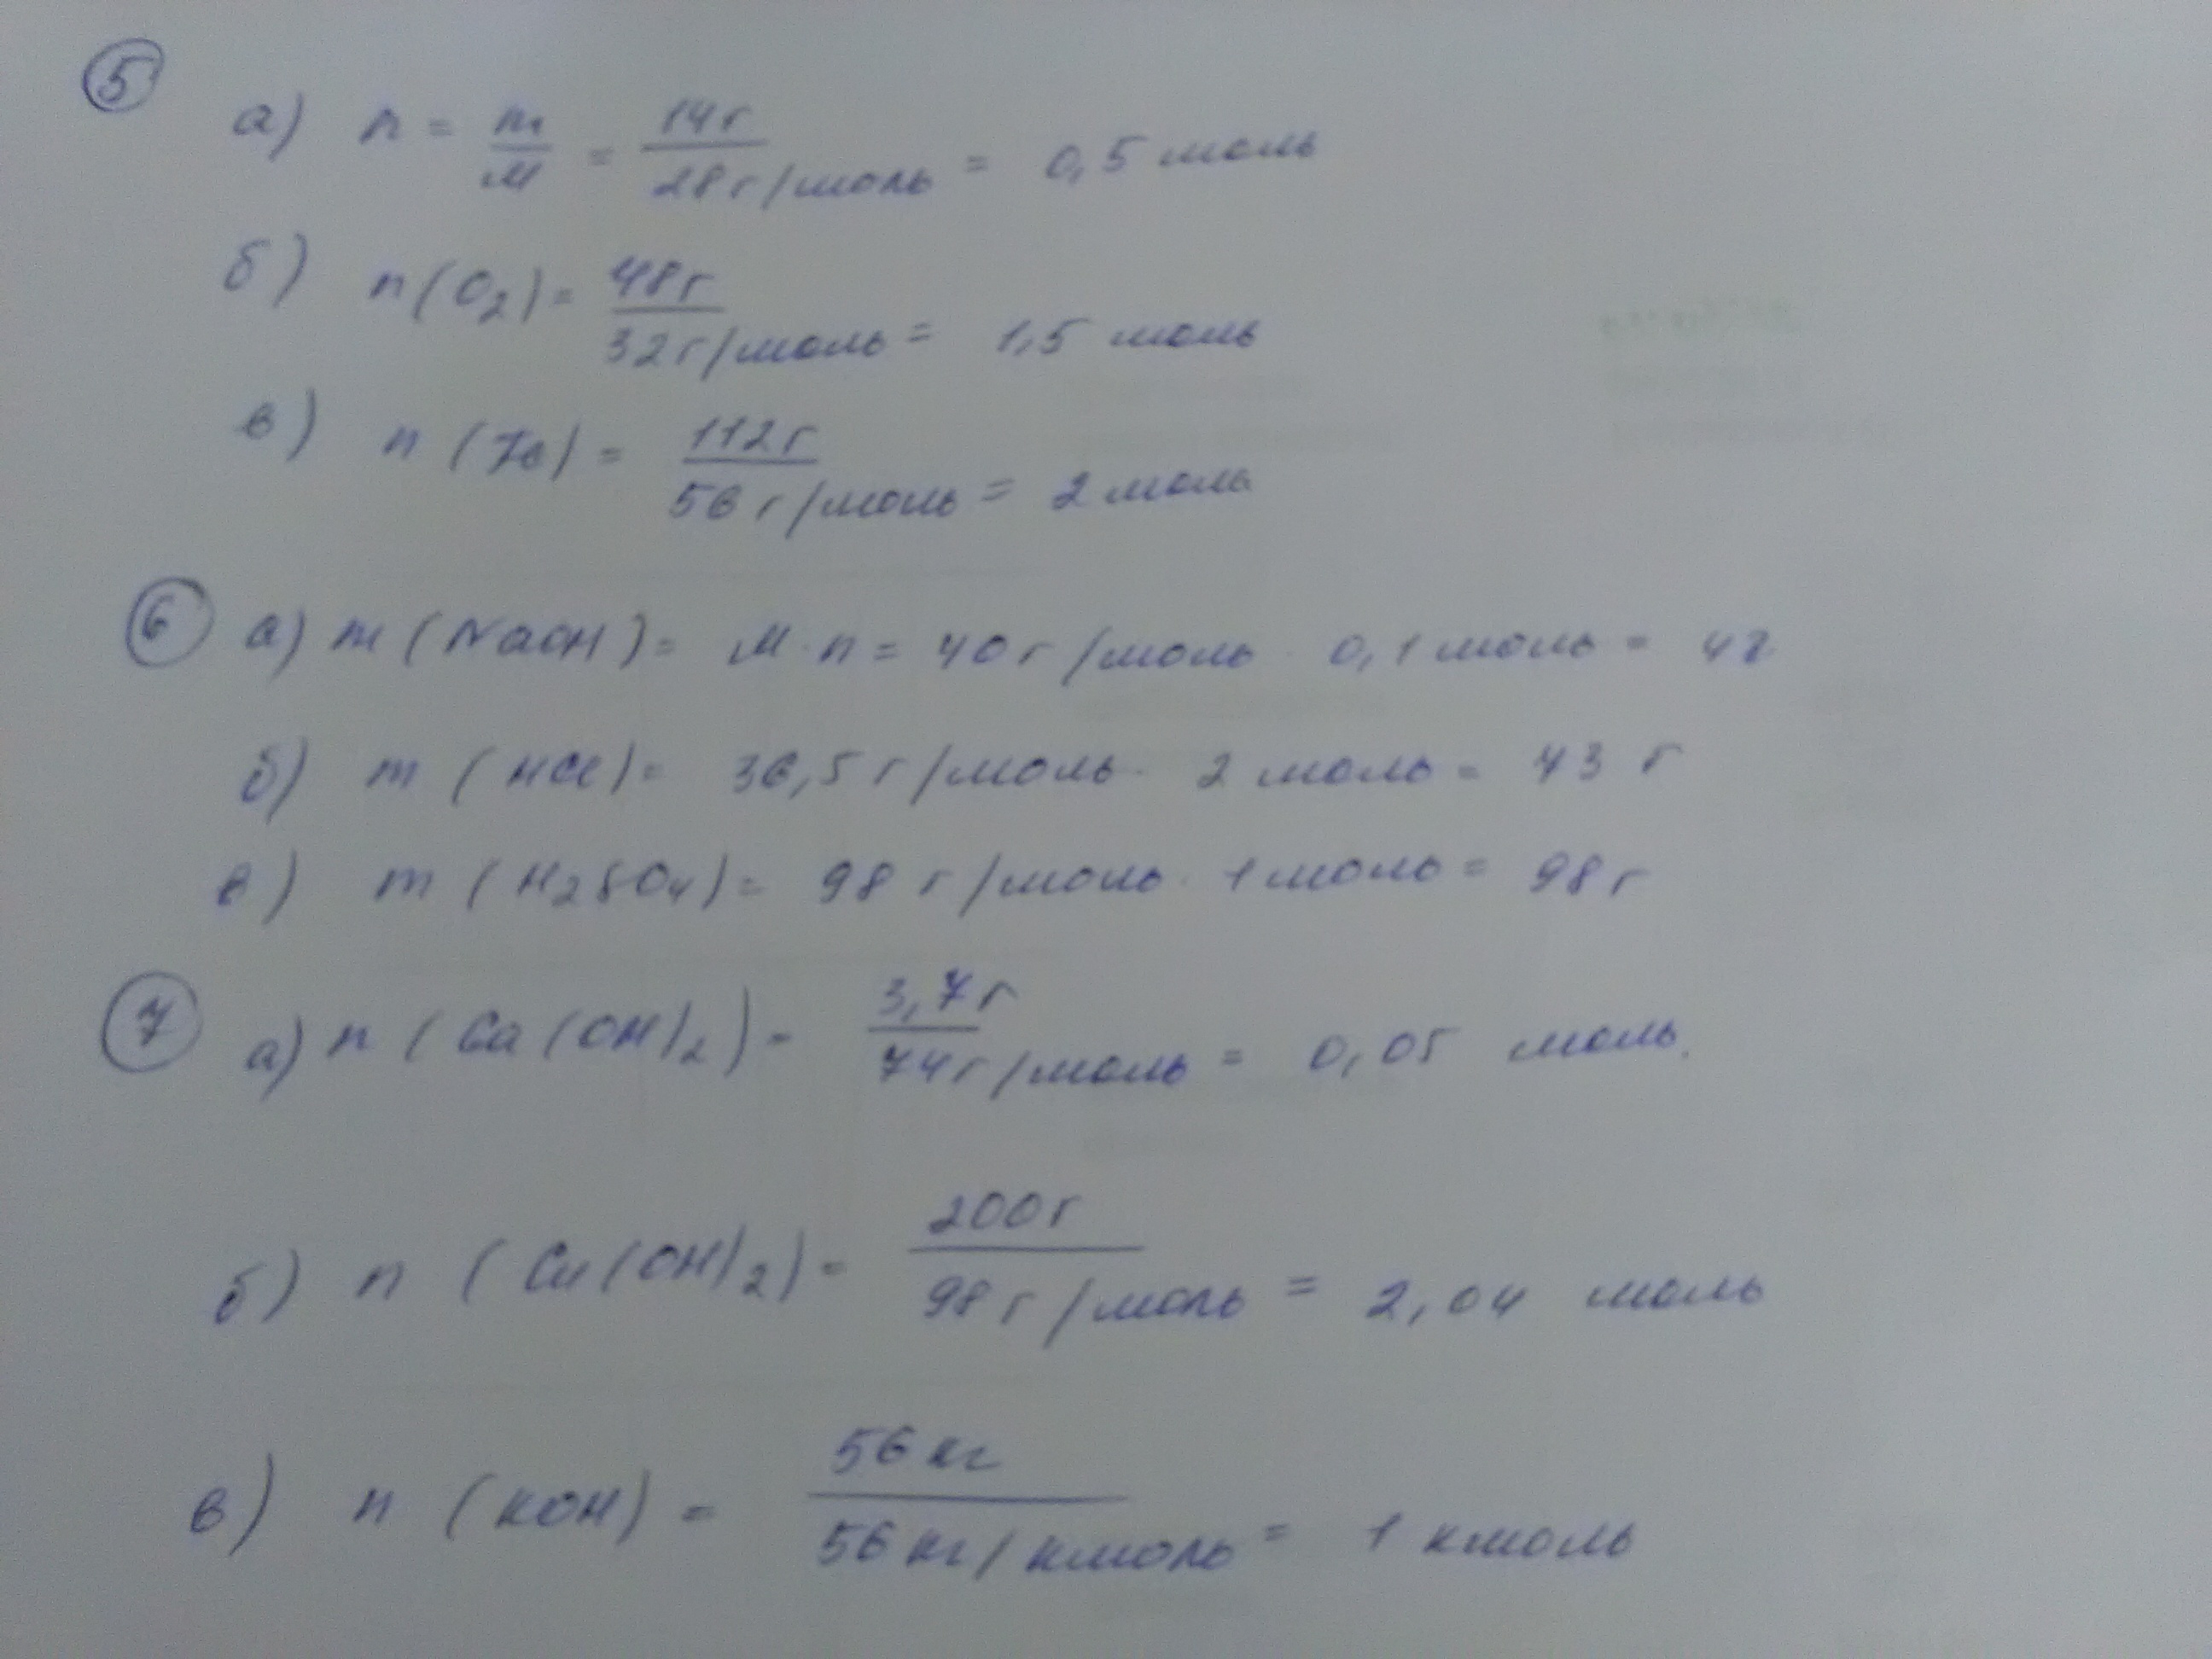 5
а) n = m/M = 14г/28г/моль = 0,5 моль
б) n(O2) = 48г/32г/моль = 1,5 моль
в) n (Fe) = 112г/56г/моль = 2 моль
6 а) m (NaOH) = M · n = 40г/моль · 0,1 моль = 4г
б) m (HCl) = 36,5г/моль · 2 моль = 73 г
в) m (H2SO4) = 98 г/моль · 1 моль = 98г
7 а) n (Ca(OH)2) = 3,7г/74г/моль = 0,05 моль.
б) n (Cu(OH)2) = 200г/98г/моль = 2,04 моль
в) n (KOH) = 56кг/56кг/кмоль = 1 кмоль